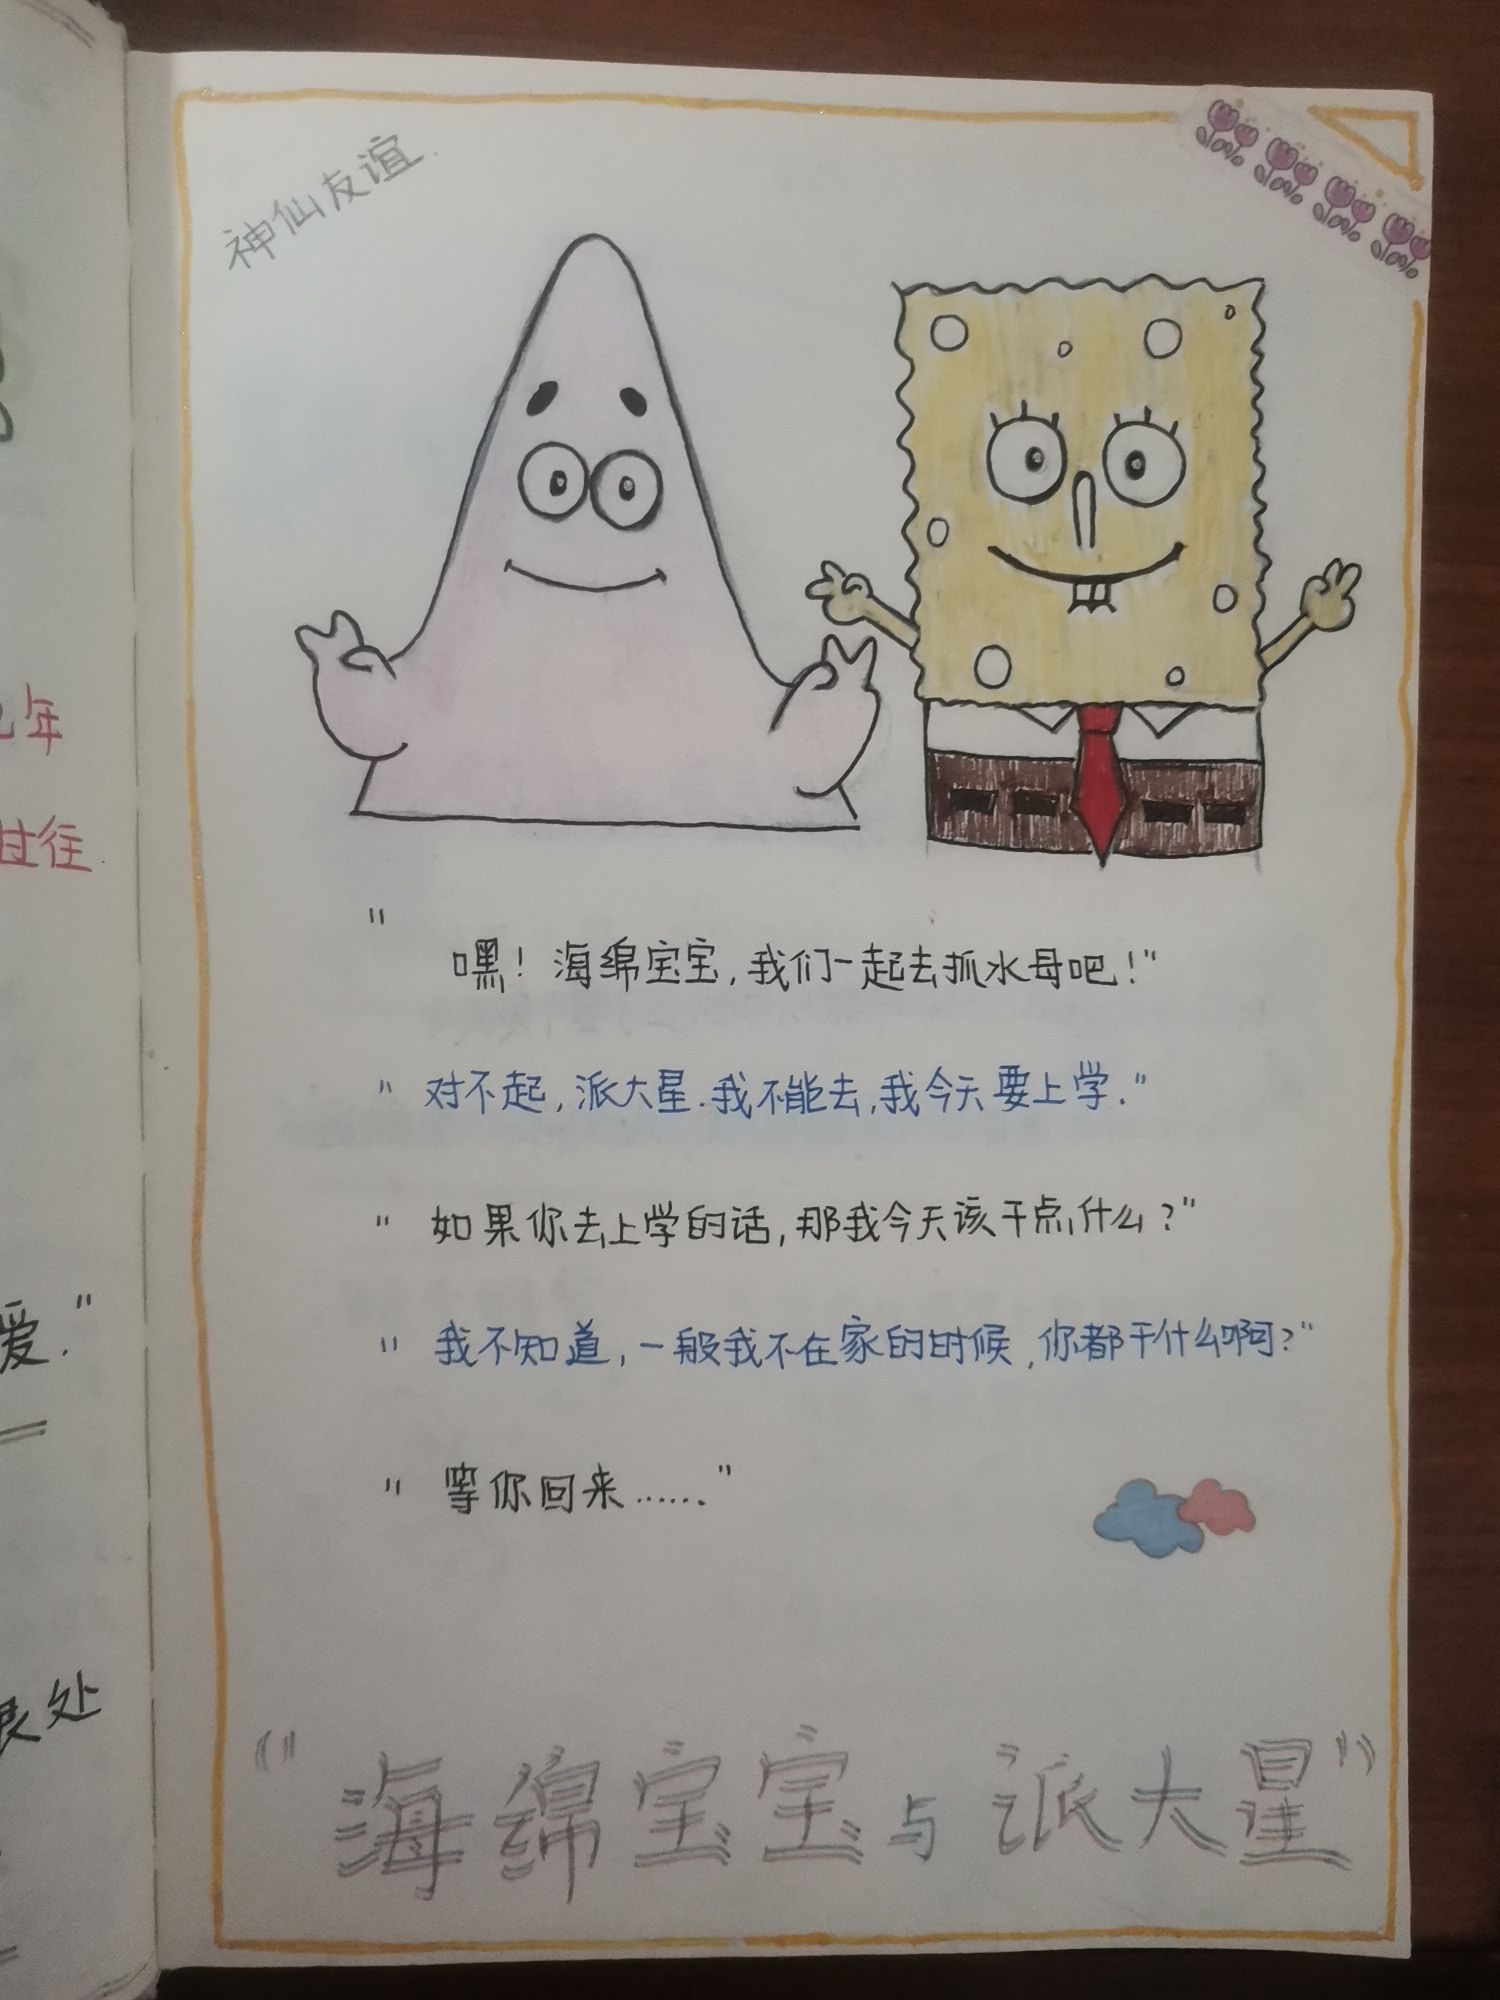 神仙友谊
年
过往
"嘿！海绵宝宝，我们一起去抓水母吧！"
"对不起，派大星.我不能去，我今天要上学."
"如果你去上学的话，那我今天该干点什么？"
"我不知道，一般我不在家的时候，你都干什么啊？"
爱."
"等你回来……"
处
"海绵宝宝与派大星"